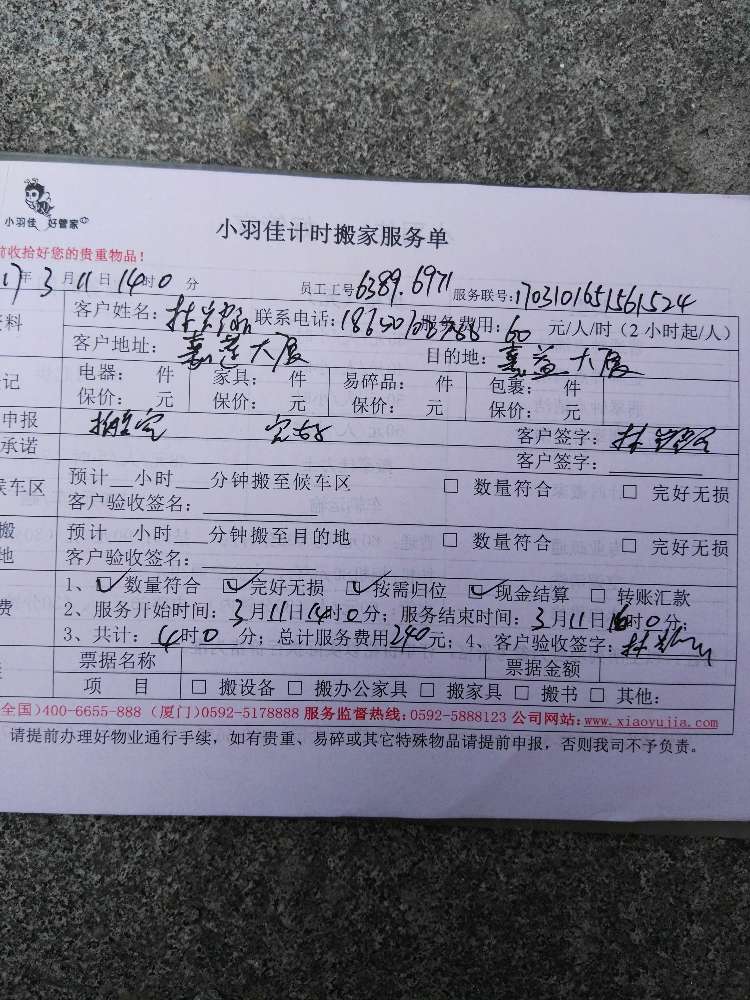 小羽佳 好管家
小羽佳计时搬家服务单
前收拾好您的贵重物品!
17年3月11日14时0分 员工工号6389.6971 服务联号:1703101651561524
资料 客户姓名: 林 联系电话: 服务费用: 60 元/人/时(2小时起/人)
客户地址: 嘉莲大厦 目的地: 嘉益大厦
记 电器: 件 家具: 件 易碎品: 件 包裹: 件
保价: 元 保价: 元 保价: 元 保价: 元
申报 完好 客户签字: 林
承诺 客户签字:
候车区 预计 小时 分钟搬至候车区 □ 数量符合 □ 完好无损
客户验收签名:
搬 预计 小时 分钟搬至目的地 □ 数量符合 □ 完好无损
地 客户验收签名:
1、☑数量符合 ☑完好无损 ☑按需归位 ☑现金结算 □ 转账汇款
费 2、服务开始时间: 3月11日14时0分; 服务结束时间: 3月11日16时0分;
3、共计: 4时0分; 总计服务费用240元; 4、客户验收签字: 林
票据名称 票据金额
项 目 □ 搬设备 □ 搬办公家具 □ 搬家具 □ 搬书 □ 其他:
全国)400-6655-888 (厦门)0592-5178888 服务监督热线:0592-5888123 公司网站:www.xiaoyujia.com
请提前办理好物业通行手续,如有贵重、易碎或其它特殊物品请提前申报,否则我司不予负责。